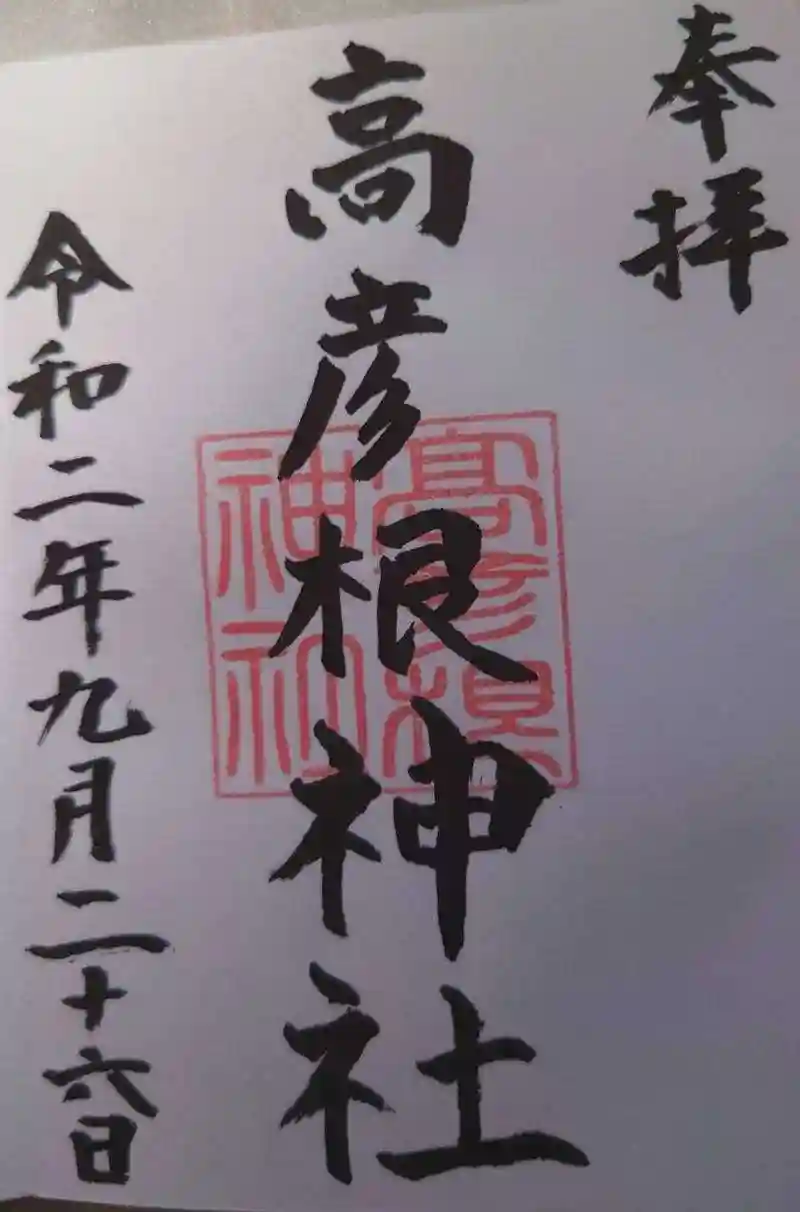 奉拝
高彦根神社
高彦根
神社
令和二年九月二十六日